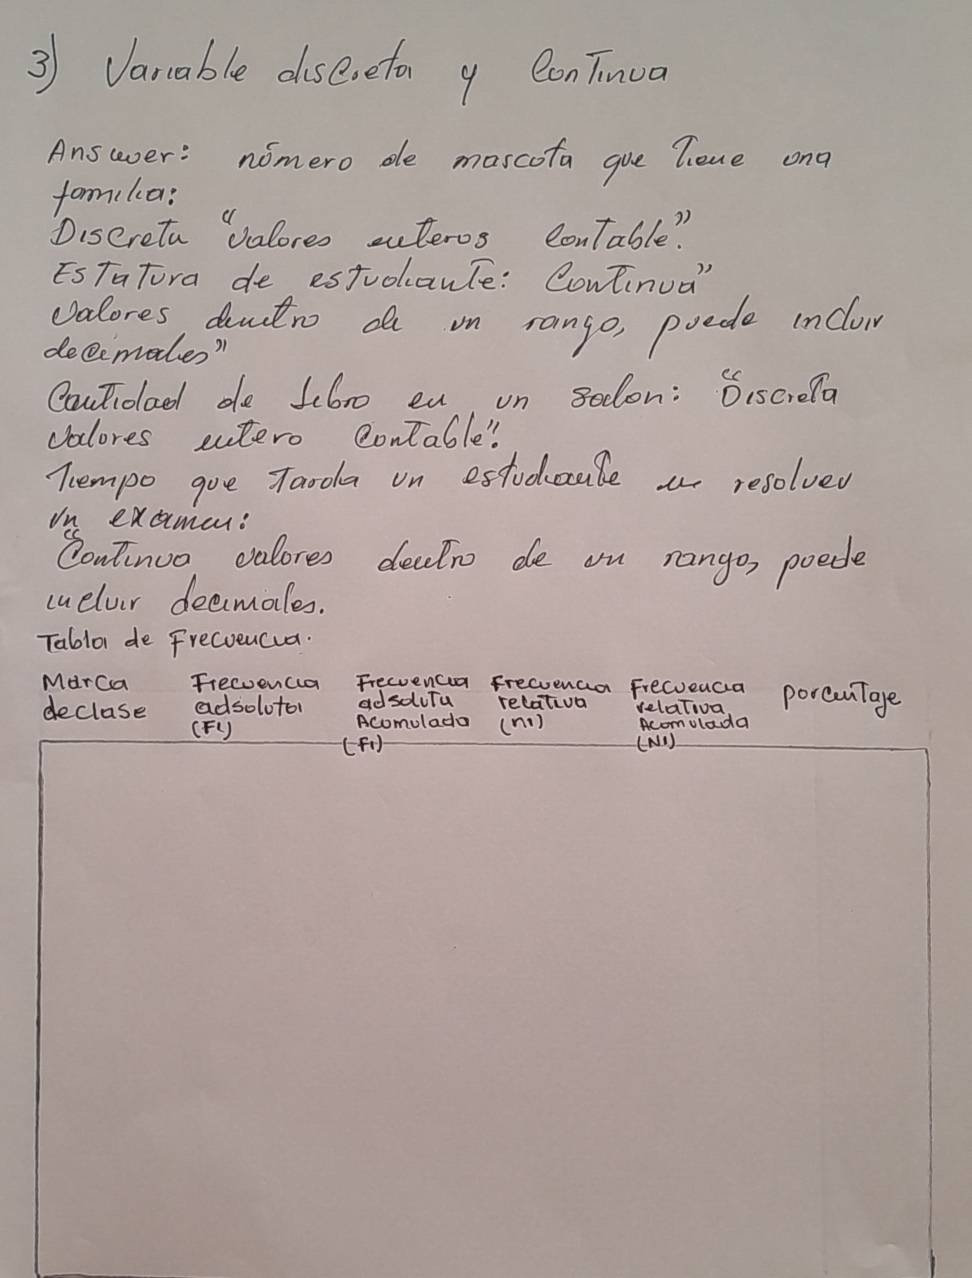 3) Variable discreta y Continua
Answer: número de mascota que Tiene una
familia:
Discreta "Valores enteros Contable".
EsTaTura de estudianTe: ConTinua"
Valores dentro de un rango, puede incluir
decimales"
CanTidad de Libro en un salon: "DiscreTa
Valores entero ConTable".
Tiempo que Tarda un estudiante en resolver
un examen:
"ConTinua valores dentro de un rango, puede
incluir decimales.
Tabla de Frecuencia.
Marca Frecuencia Frecuencia Frecuencia Frecuencia porcenTaje
de clase adsoluta adsoluTa relaTiva relaTiva
(Fi) Acomulada (ni) Acomulada
(fi) (Ni)